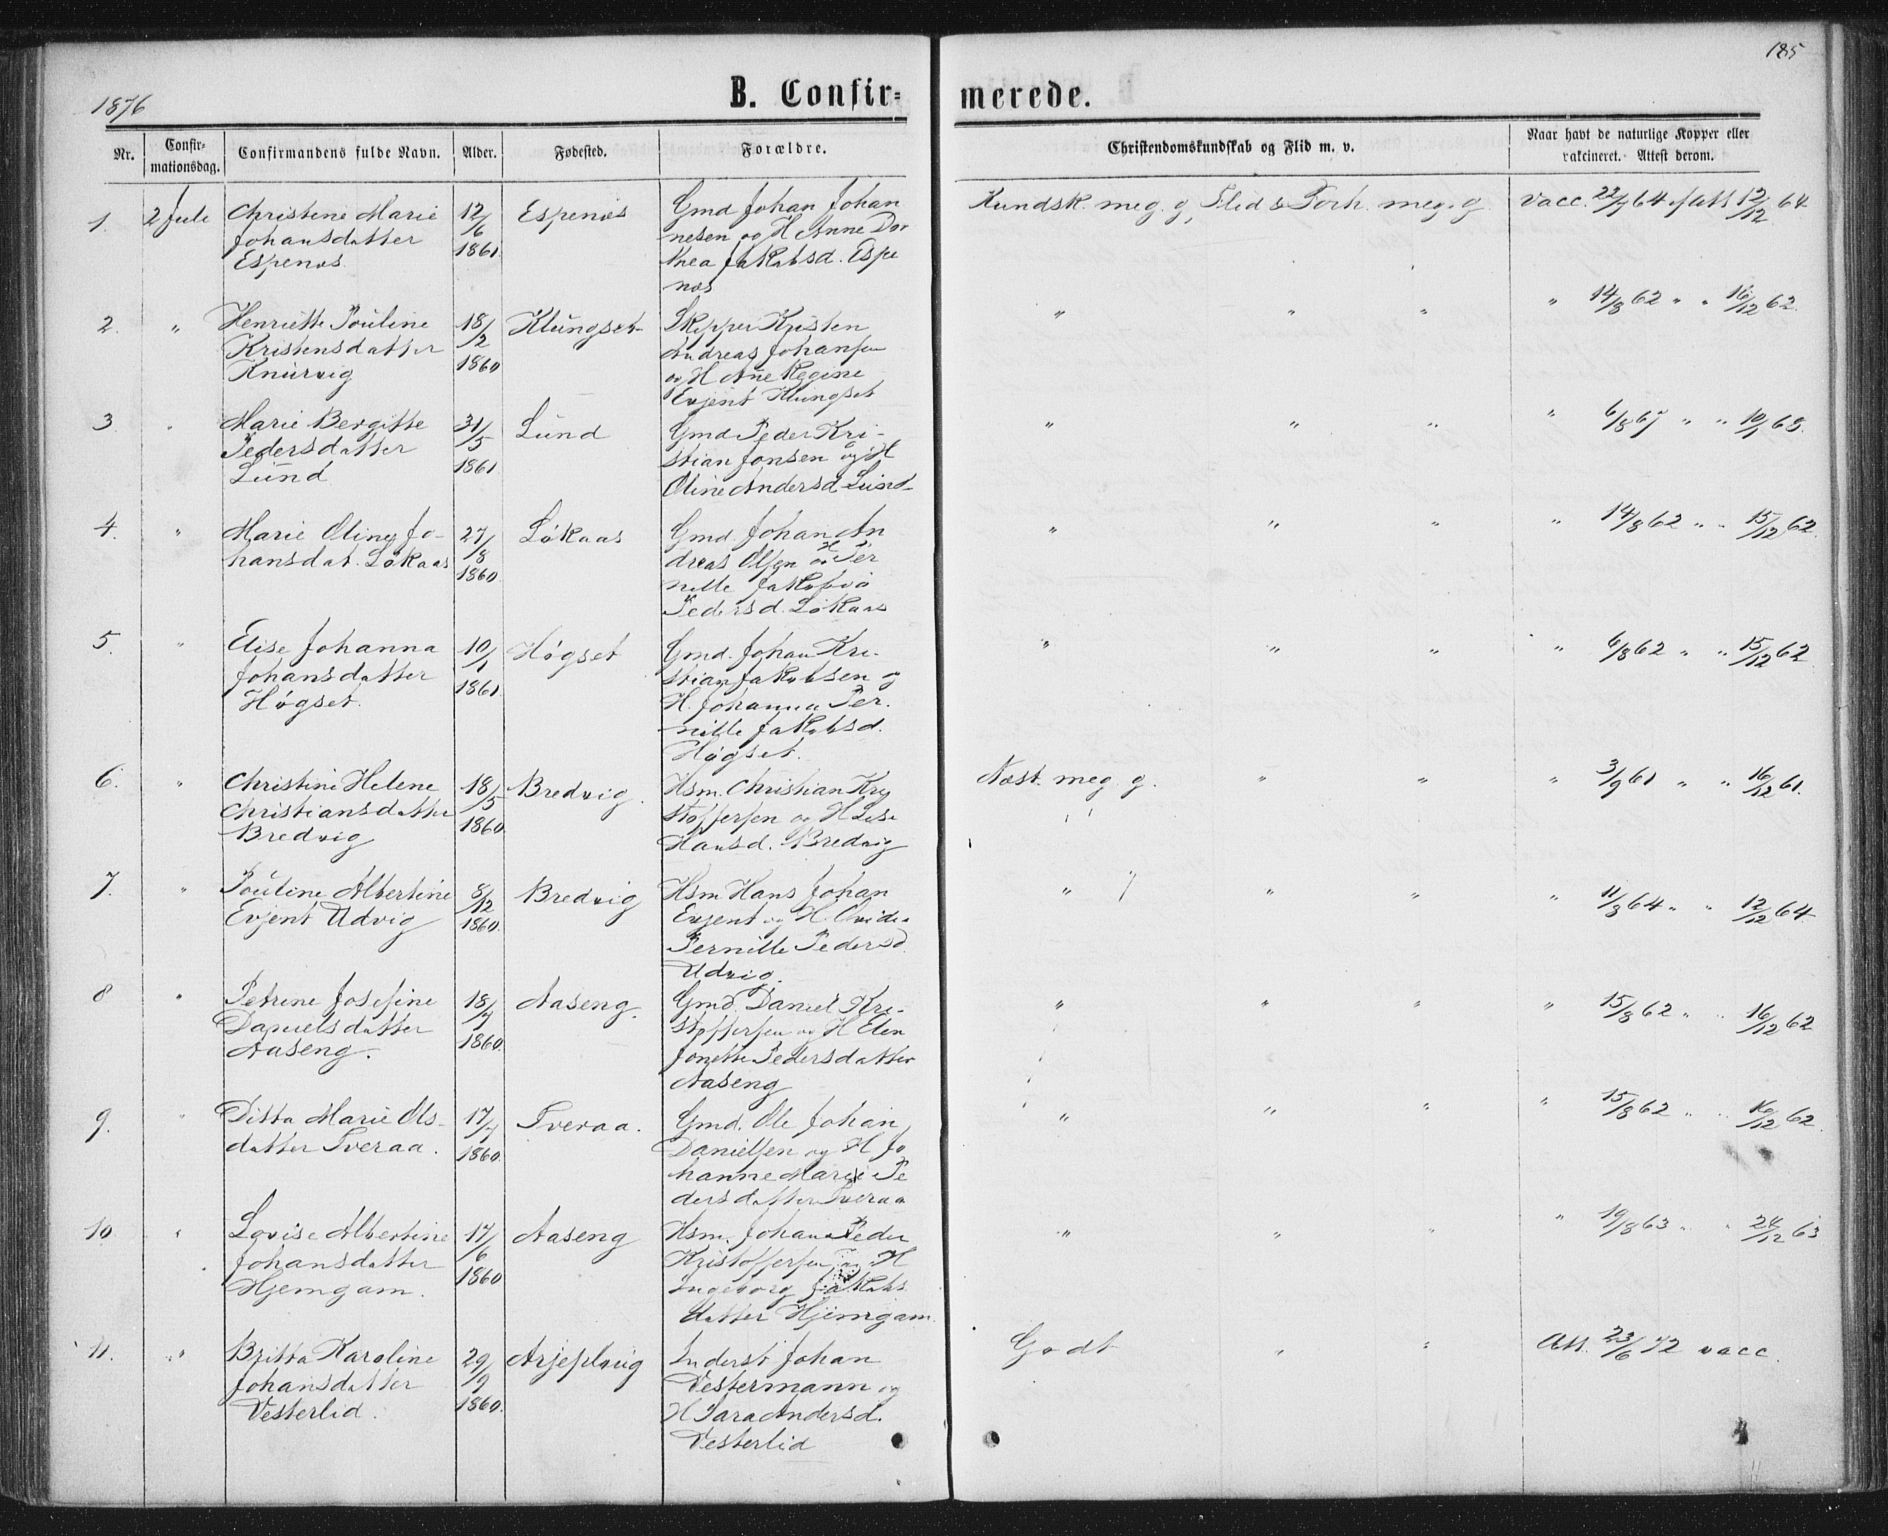 185
1876
B. Confir= merede.
Nr. Confir-mationsdag. Confirmandens fulde Navn. Alder. Fødested. Forældre. Christendomskundskab og Flid m. v. Naar havt de naturlige Kopper eller vakcineret. Attest derom.
1. 2 Juli Christine Marie 12/6 Espenæs Gmd Johan Johan Kundsk. meg. g, Flid & Forh. meg. g vacc. 22/7 64 Att 12/12 64
Johansdatter 1861 nesen og H Anne Dor
Espenæs. thea Jakobsd. Espe
næs
2. " Henriette Pouline 18/2 Klungset Skipper Kristen " " " " 14/8 62 " " 16/12 62.
Kristensdatter 1860 Andreas Johansen
Knurvig og H Ane Regine
Evjent Klungset
3 " Marie Bergitte 31/5 Lund Gmd Peder Kri- " " " " 6/8 67 " "
Pedersdatter 1861 stian Jonsen og H
Lund Oline Andersd Lund
4. " Marie Oline Jo- 27/8 Løkaas Gmd. Johan An " " " " 14/8 62 " " 15/12 62.
hansdat. Løkaas 1860 dreas Olsen og H Per
nille Jakobva
Pedersd. Løkaas
5. " Elise Johanna 10/1 Høgset Gmd. Johan Kri- " " " " 6/8 62 " " 15/12 62
Johansdatter 1861 stian Jakobsen og
Høgset. H. Johanna Per.
nille Jakobsd.
Høgset.
6. " Christine Helene 18/5 Bredvig. Hsm. Christian Kry Næst. meg g. " " " 3/9 61 " " 16/12 61.
Christiansdatter 1860 stoffersen og H Lise
Bredvig Hansd. Bredvig
7. " Pouline Albertine 8/12 Bredvig Hsm Hans Johan " " " " " 11/8 64 " " 12/12 64
Evjent Udvig 1860. Evjent og H.
Pernille Pedersd
Udvig.
8 " Petrine Josefine 18/7 Aaseng. Gmd. Daniel Kri- " " " " 15/8 62 " " 16/12 62
Danielsdatter 1860. stoffersen og H Elen
Aaseng. Jonette Pedersdatter
Aaseng
9. " Ditta Marie Ols- 17/7 Tveraa. Gmd. Ole Johan " " " " 15/8 62 " " 16/12 62.
datter Tveraa. 1860. Danielsen og H Jo
hanne Marie Pe
dersdatter Tveraa
10. " Lovise Albertine 17/6 Aaseng Hsm. Johan Peder " " " " 19/8 63 " " 24/12 63
Johansdatter 1860 Kristoffersen og H
Hjemgam. Ingeborg Jakobs
datter Hjemgam.
11. " Britta Karoline 29/9 Arjeplvig Inderst Johan Godt " " Att. 23/6 72 vacc.
Johansdatter 1860. Vestermann og
Vesterlid. H Sara Andersd.
Vesterlid